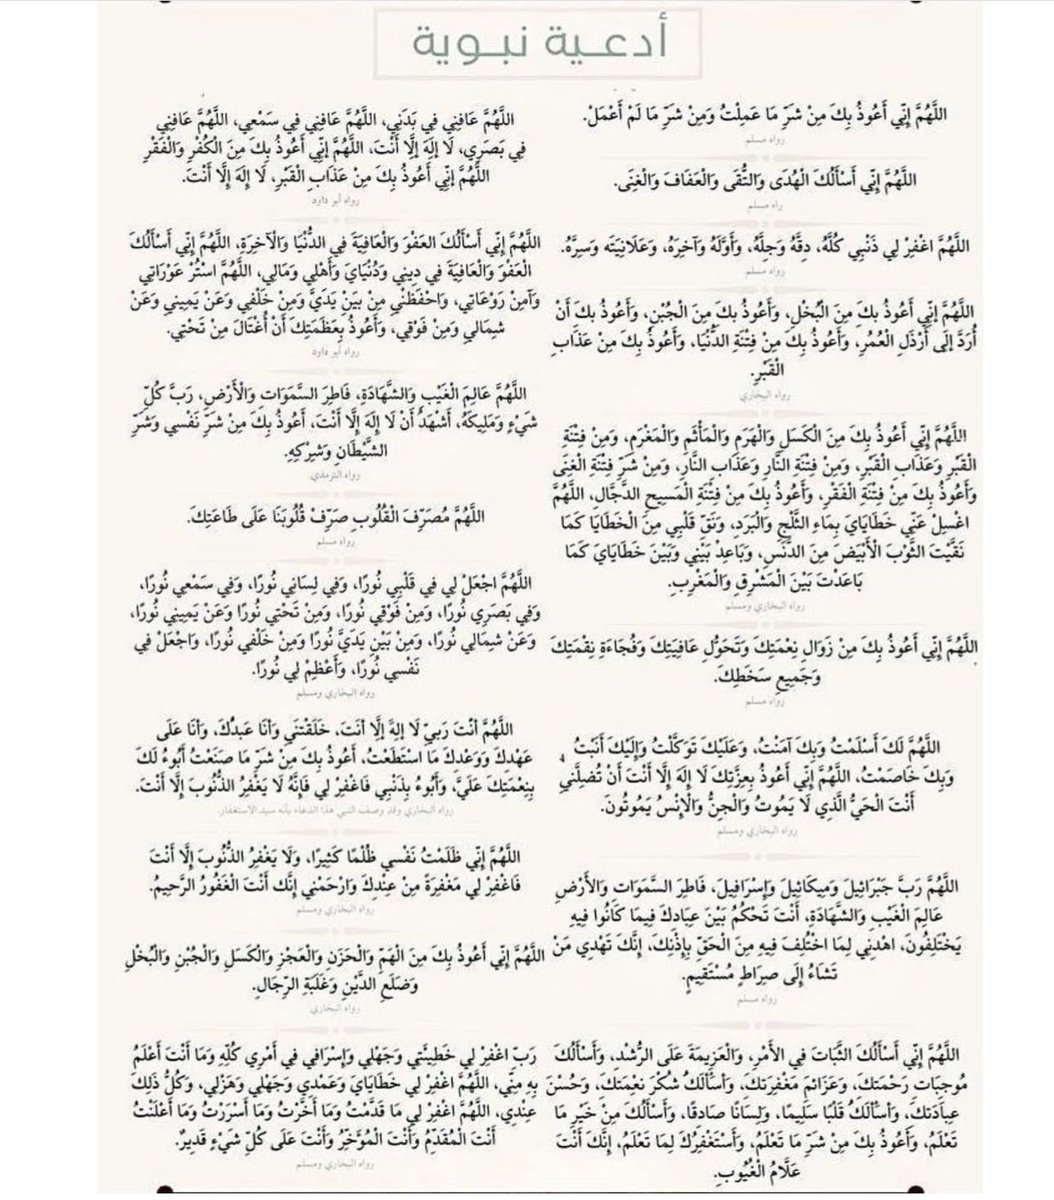 أدعية نبوية
اللَّهُمَّ إِنِّي أَعُوذُ بِكَ مِنْ شَرِّ مَا عَمِلْتُ وَمِنْ شَرِّ مَا لَمْ أَعْمَلْ.
رواه مسلم
اللَّهُمَّ إِنِّي أَسْأَلُكَ الْهُدَى وَالتُّقَى وَالْعَفَافَ وَالْغِنَى.
راه مسلم
اللَّهُمَّ اغْفِرْ لِي ذَنْبِي كُلَّهُ، دِقَّهُ وَجِلَّهُ، وَأَوَّلَهُ وَآخِرَهُ، وَعَلَانِيَتَه وَسِرَّهُ.
رواه مسلم
اللَّهُمَّ إِنِّي أَعُوذُ بِكَ مِنَ الْبُخْلِ، وَأَعُوذُ بِكَ مِنَ الْجُبْنِ، وَأَعُوذُ بِكَ أَنْ
أُرَدَّ إِلَى أَرْذَلِ الْعُمُرِ، وَأَعُوذُ بِكَ مِنْ فِتْنَةِ الدُّنْيَا، وَأَعُوذُ بِكَ مِنْ عَذَابِ
الْقَبْرِ.
رواه البخاري
اللَّهُمَّ إِنِّي أَعُوذُ بِكَ مِنَ الْكَسَلِ وَالْهَرَمِ وَالْمَأْثَمِ وَالْمَغْرَمِ، وَمِنْ فِتْنَةِ
الْقَبْرِ وَعَذَابِ الْقَبْرِ، وَمِنْ فِتْنَةِ النَّارِ وَعَذَابِ النَّارِ، وَمِنْ شَرِّ فِتْنَةِ الْغِنَى
وَأَعُوذُ بِكَ مِنْ فِتْنَةِ الْفَقْرِ، وَأَعُوذُ بِكَ مِنْ فِتْنَةِ الْمَسِيحِ الدَّجَّالِ، اللَّهُمَّ
اغْسِلْ عَنِّي خَطَايَايَ بِمَاءِ الثَّلْجِ وَالْبَرَدِ، وَنَقِّ قَلْبِي مِنَ الْخَطَايَا كَمَا
نَقَّيْتَ الثَّوْبَ الْأَبْيَضَ مِنَ الدَّنَسِ، وَبَاعِدْ بَيْنِي وَبَيْنَ خَطَايَايَ كَمَا
بَاعَدْتَ بَيْنَ الْمَشْرِقِ وَالْمَغْرِبِ.
رواه البخاري ومسلم
اللَّهُمَّ إِنِّي أَعُوذُ بِكَ مِنْ زَوَالِ نِعْمَتِكَ وَتَحَوُّلِ عَافِيَتِكَ وَفُجَاءَةِ نِقْمَتِكَ
وَجَمِيعِ سَخَطِكَ.
رواه مسلم
اللَّهُمَّ لَكَ أَسْلَمْتُ وَبِكَ آمَنْتُ، وَعَلَيْكَ تَوَكَّلْتُ وَإِلَيْكَ أَنَبْتُ
وَبِكَ خَاصَمْتُ، اللَّهُمَّ إِنِّي أَعُوذُ بِعِزَّتِكَ لَا إِلَهَ إِلَّا أَنْتَ أَنْ تُضِلَّنِي
أَنْتَ الْحَيُّ الَّذِي لَا يَمُوتُ وَالْجِنُّ وَالْإِنْسُ يَمُوتُونَ.
رواه البخاري ومسلم
اللَّهُمَّ رَبَّ جَبْرَائِيلَ وَمِيكَائِيلَ وَإِسْرَافِيلَ، فَاطِرَ السَّمَوَاتِ وَالأَرْضِ
عَالِمَ الْغَيْبِ وَالشَّهَادَةِ، أَنْتَ تَحْكُمُ بَيْنَ عِبَادِكَ فِيمَا كَانُوا فِيهِ
يَخْتَلِفُونَ، اهْدِنِي لِمَا اخْتُلِفَ فِيهِ مِنَ الْحَقِّ بِإِذْنِكَ، إِنَّكَ تَهْدِي مَنْ
تَشَاءُ إِلَى صِرَاطٍ مُسْتَقِيمٍ.
رواه مسلم
اللَّهُمَّ إِنِّي أَسْأَلُكَ الثَّبَاتَ فِي الأَمْرِ، وَالْعَزِيمَةَ عَلَى الرُّشْدِ، وَأَسْأَلُكَ
مُوجِبَاتِ رَحْمَتِكَ، وَعَزَائِمَ مَغْفِرَتِكَ، وَأَسْأَلُكَ شُكْرَ نِعْمَتِكَ، وَحُسْنَ
عِبَادَتِكَ، وَأَسْأَلُكَ قَلْبًا سَلِيمًا، وَلِسَانًا صَادِقًا، وَأَسْأَلُكَ مِنْ خَيْرِ مَا
تَعْلَمُ، وَأَعُوذُ بِكَ مِنْ شَرِّ مَا تَعْلَمُ، وَأَسْتَغْفِرُكَ لِمَا تَعْلَمُ، إِنَّكَ أَنْتَ
عَلَّامُ الْغُيُوبِ.
اللَّهُمَّ عَافِنِي فِي بَدَنِي، اللَّهُمَّ عَافِنِي فِي سَمْعِي، اللَّهُمَّ عَافِنِي
فِي بَصَرِي، لَا إِلَهَ إِلَّا أَنْتَ، اللَّهُمَّ إِنِّي أَعُوذُ بِكَ مِنَ الْكُفْرِ وَالْفَقْرِ
اللَّهُمَّ إِنِّي أَعُوذُ بِكَ مِنْ عَذَابِ الْقَبْرِ، لَا إِلَهَ إِلَّا أَنْتَ.
رواه أبو داود
اللَّهُمَّ إِنِّي أَسْأَلُكَ العَفْوَ وَالْعَافِيَةَ فِي الدُّنْيَا وَالْآخِرَةِ، اللَّهُمَّ إِنِّي أَسْأَلُكَ
الْعَفْوَ وَالْعَافِيَةَ فِي دِينِي وَدُنْيَايَ وَأَهْلِي وَمَالِي، اللَّهُمَّ اسْتُرْ عَوْرَاتِي
وَآمِنْ رَوْعَاتِي، وَاحْفَظْنِي مِنْ بَيْنِ يَدَيَّ وَمِنْ خَلْفِي وَعَنْ يَمِينِي وَعَنْ
شِمَالِي وَمِنْ فَوْقِي، وَأَعُوذُ بِعَظَمَتِكَ أَنْ أُغْتَالَ مِنْ تَحْتِي.
رواه أبو داود
اللَّهُمَّ عَالِمَ الْغَيْبِ وَالشَّهَادَةِ، فَاطِرَ السَّمَوَاتِ وَالْأَرْضِ، رَبَّ كُلِّ
شَيْءٍ وَمَلِيكَهُ، أَشْهَدُ أَنْ لَا إِلَهَ إِلَّا أَنْتَ، أَعُوذُ بِكَ مِنْ شَرِّ نَفْسِي وَشَرِّ
الشَّيْطَانِ وَشِرْكِهِ.
رواه الترمذي
اللَّهُمَّ مُصَرِّفَ الْقُلُوبِ صَرِّفْ قُلُوبَنَا عَلَى طَاعَتِكَ.
رواه مسلم
اللَّهُمَّ اجْعَلْ لِي فِي قَلْبِي نُورًا، وَفِي لِسَانِي نُورًا، وَفِي سَمْعِي نُورًا،
وَفِي بَصَرِي نُورًا، وَمِنْ فَوْقِي نُورًا، وَمِنْ تَحْتِي نُورًا وَعَنْ يَمِينِي نُورًا،
وَعَنْ شِمَالِي نُورًا، وَمِنْ بَيْنِ يَدَيَّ نُورًا وَمِنْ خَلْفِي نُورًا، وَاجْعَلْ فِي
نَفْسِي نُورًا، وَأَعْظِمْ لِي نُورًا.
رواه البخاري ومسلم
اللَّهُمَّ أَنْتَ رَبِّيْ لَا إِلهَ إِلَّا أنتَ، خَلَقْتَنِي وَأَنَا عَبدُكَ، وَأَنَا عَلَى
عَهْدِكَ وَوَعْدِكَ مَا اسْتَطَعْتُ، أَعُوذُ بِكَ مِنْ شَرِّ مَا صَنَعْتُ أَبُوءُ لَكَ
بِنِعْمَتِكَ عَلَيَّ، وَأَبُوءُ بِذَنْبِي فَاغْفِرْ لِي فَإِنَّهُ لَا يَغْفِرُ الذُّنُوبَ إِلَّا أَنْتَ.
رواه البخاري وقد وصف النبي هذا الدعاء بأنه سيد الاستغفار.
اللَّهُمَّ إِنِّي ظَلَمْتُ نَفْسِي ظُلْمًا كَثِيرًا، وَلَا يَغْفِرُ الذُّنُوبَ إِلَّا أَنْتَ
فَاغْفِرْ لِي مَغْفِرَةً مِنْ عِنْدِكَ وَارْحَمْنِي إِنَّك أَنْتَ الْغَفُورُ الرَّحِيمُ.
رواه البخاري ومسلم
اللَّهُمَّ إِنِّي أَعُوذُ بِكَ مِنَ الْهَمِّ وَالْحَزَنِ وَالْعَجْزِ وَالْكَسَلِ وَالْجُبْنِ وَالْبُخْلِ
وَضَلَعِ الدَّيْنِ وَغَلَبَةِ الرِّجَالِ.
رواه البخاري
رَبِّ اغْفِرْ لِي خَطِيئَتِي وَجَهْلِي وَإِسْرَافِي فِي أَمْرِي كُلِّهِ وَمَا أَنْتَ أَعْلَمُ
بِهِ مِنِّي، اللَّهُمَّ اغْفِرْ لِي خَطَايَايَ وَعَمْدِي وَجَهْلِي وَهَزْلِي، وَكُلُّ ذَلِكَ
عِنْدِي، اللَّهُمَّ اغْفِرْ لِي مَا قَدَّمْتُ وَمَا أَخَّرْتُ وَمَا أَسْرَرْتُ وَمَا أَعْلَنْتُ
أَنْتَ الْمُقَدِّمُ وَأَنْتَ الْمُؤَخِّرُ وَأَنْتَ عَلَى كُلِّ شَيْءٍ قَدِيرٌ.
رواه البخاري ومسلم